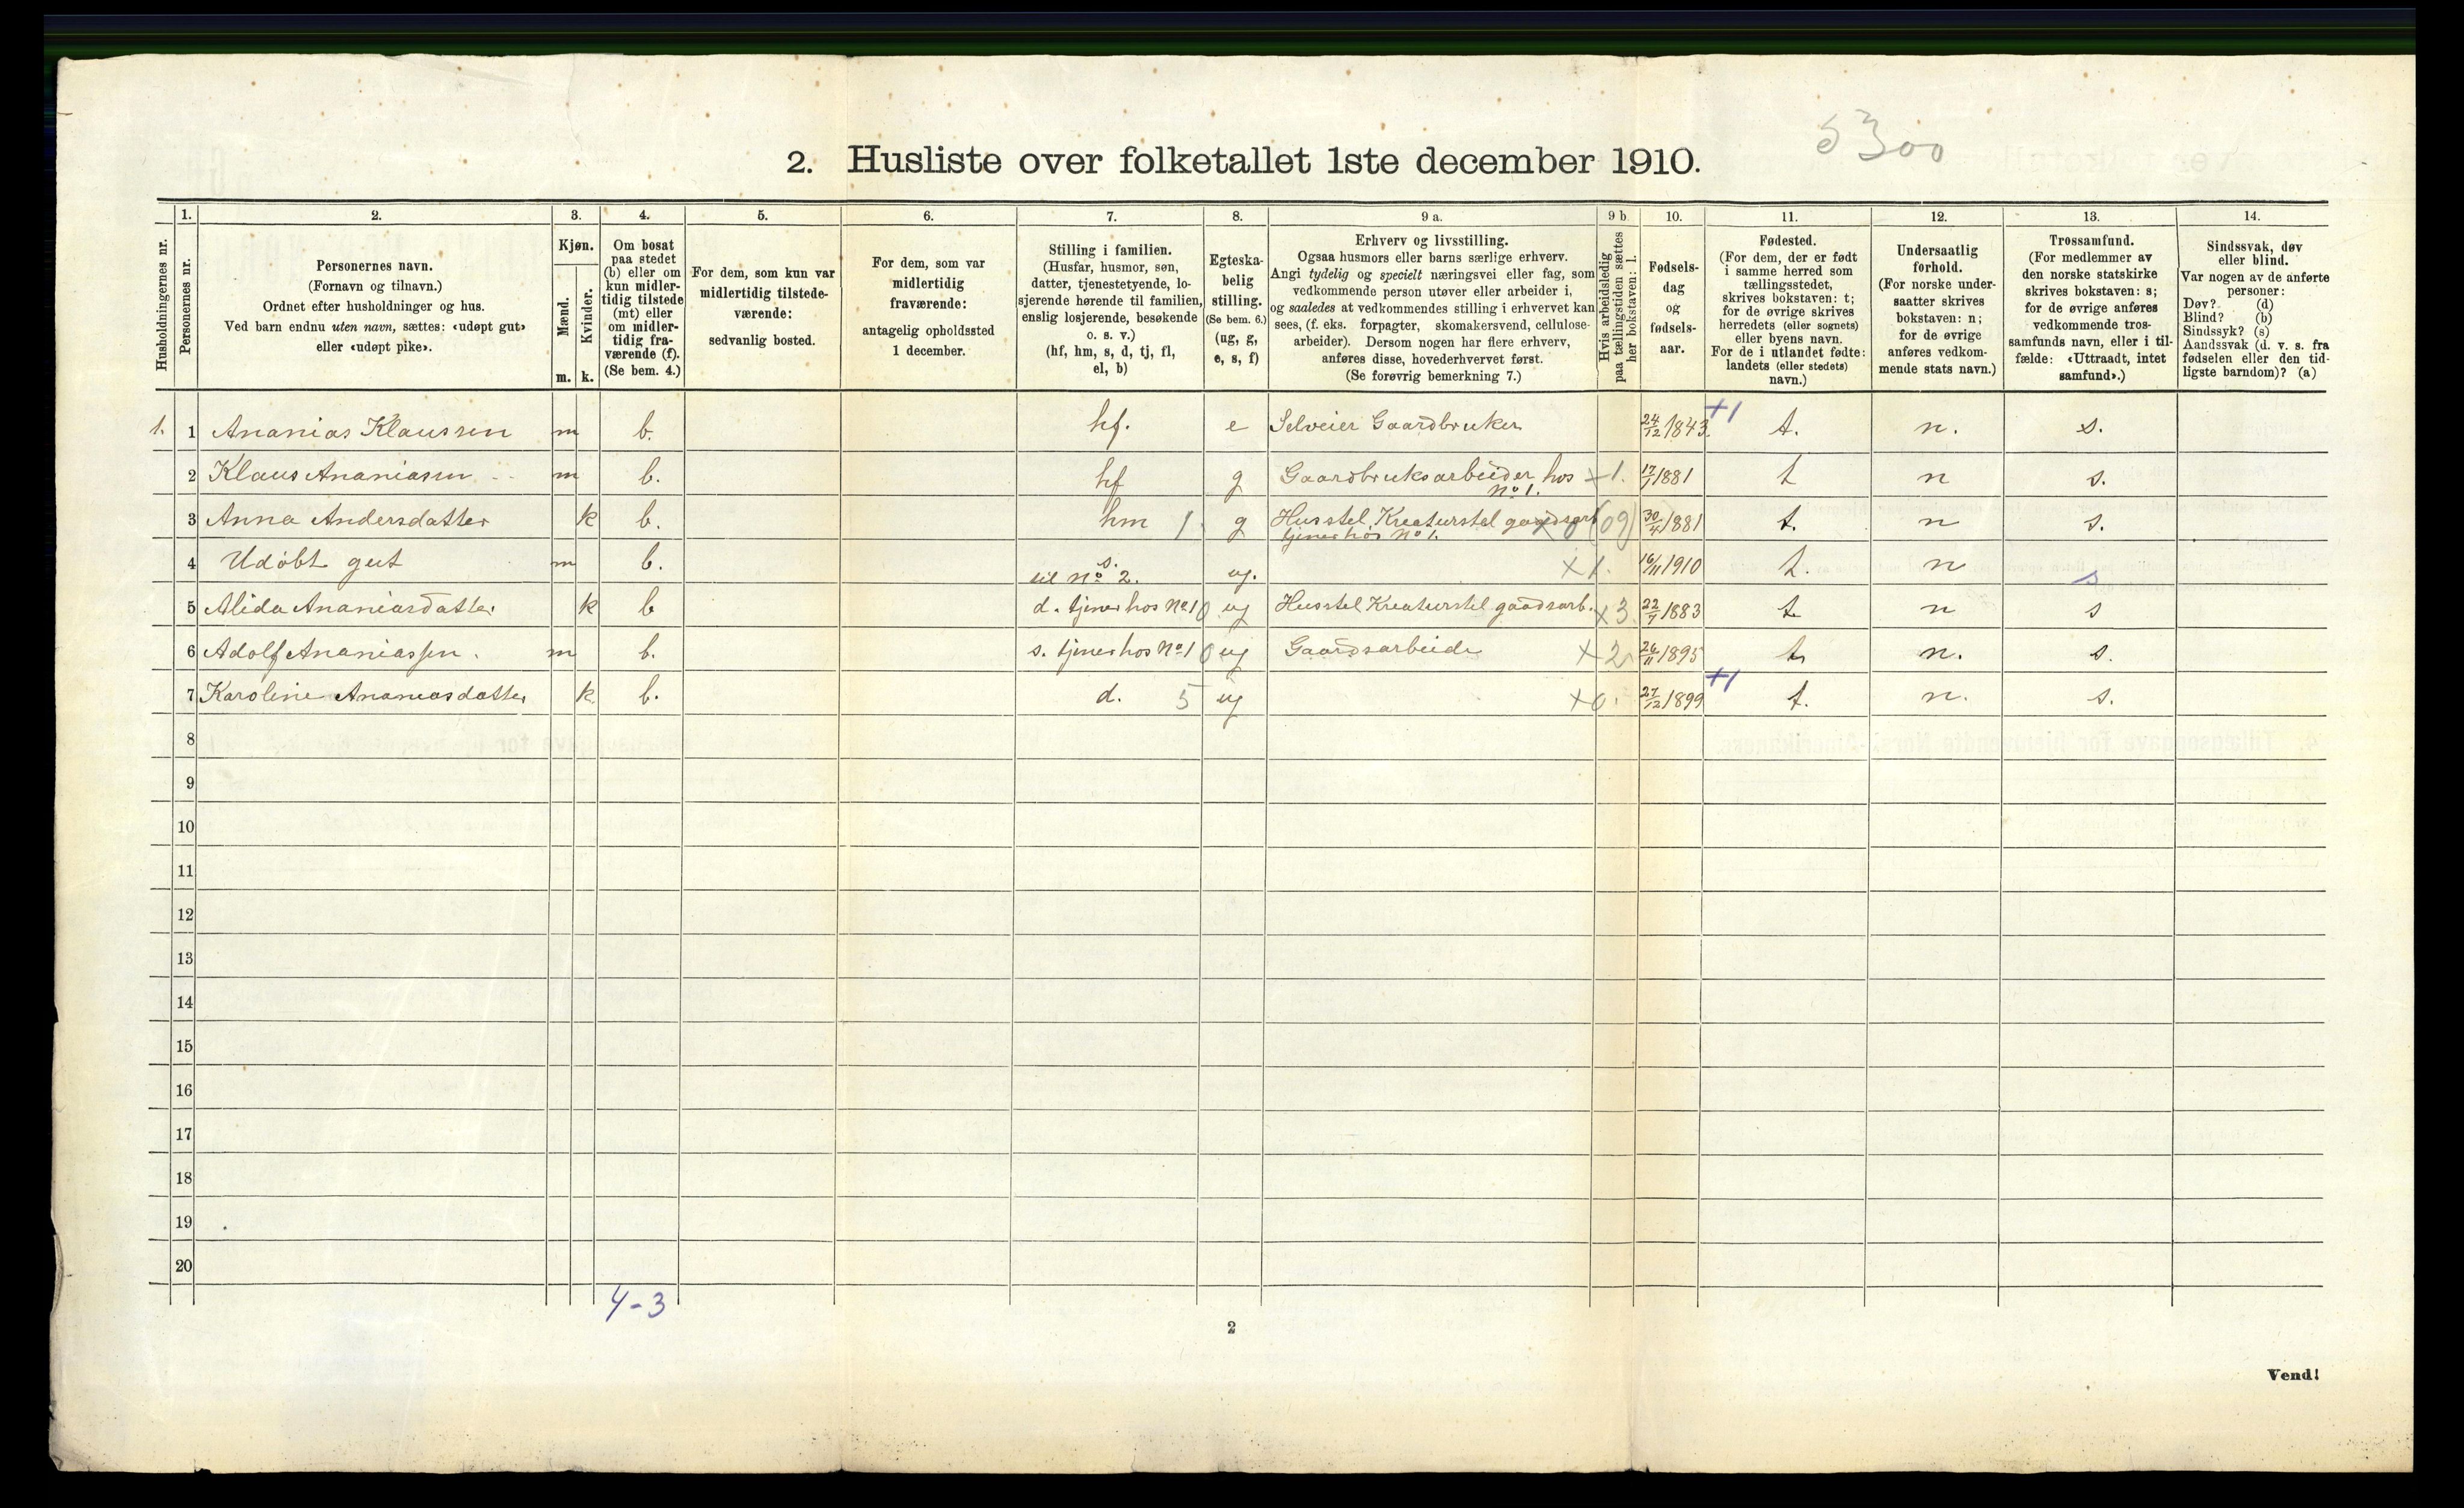 5300
2. Husliste over folketallet 1ste december 1910.
1. 2. 3. 4. 5. 6. 7. 8. 9 a. 9 b. 10. 11. 12. 13. 14.
Husholdningernes nr.
Personernes nr.
Personernes navn.
(Fornavn og tilnavn.)
Ordnet efter husholdninger og hus.
Ved barn endnu uten navn, sættes: «udøpt gut»
eller «udøpt pike».
Kjøn.
Mænd.
Kvinder.
m. k.
Om bosat
paa stedet
(b) eller om
kun midler-
tidig tilstede
(mt) eller
om midler-
tidig fra-
værende (f).
(Se bem. 4.)
For dem, som kun var
midlertidig tilstede-
værende:
sedvanlig bosted.
For dem, som var
midlertidig
fraværende:
antagelig opholdssted
1 december.
Stilling i familien.
(Husfar, husmor, søn,
datter, tjenestetyende, lo-
sjerende hørende til familien,
enslig losjerende, besøkende
o. s. v.)
(hf, hm, s, d, tj, fl,
el, b)
Egteska-
belig
stilling.
(Se bem. 6.)
(ug, g,
e, s, f)
Erhverv og livsstilling.
Ogsaa husmors eller barns særlige erhverv.
Angi tydelig og specielt næringsvei eller fag, som
vedkommende person utøver eller arbeider i,
og saaledes at vedkommendes stilling i erhvervet kan
sees, (f. eks. forpagter, skomakersvend, cellulose-
arbeider). Dersom nogen har flere erhverv,
anføres disse, hovederhvervet først.
(Se forøvrig bemerkning 7.)
Hvis arbeidsledig
paa tællingstiden sættes
her bokstaven: l.
Fødsels-
dag
og
fødsels-
aar.
Fødested.
(For dem, der er født
i samme herred som
tællingsstedet,
skrives bokstaven: t;
for de øvrige skrives
herredets (eller sognets)
eller byens navn.
For de i utlandet fødte:
landets (eller stedets)
navn.)
Undersaatlig
forhold.
(For norske under-
saatter skrives
bokstaven: n;
for de øvrige
anføres vedkom-
mende stats navn.)
Trossamfund.
(For medlemmer av
den norske statskirke
skrives bokstaven: s;
for de øvrige anføres
vedkommende tros-
samfunds navn, eller i til-
fælde: «Uttraadt, intet
samfund».)
Sindssvak, døv
eller blind.
Var nogen av de anførte
personer:
Døv? (d)
Blind? (b)
Sindssyk? (s)
Aandssvak (d. v. s. fra
fødselen eller den tid-
ligste barndom)? (a)
1. 1 Ananias Klaussen m b. hf. e Selveier Gaardbruker 24/12 1843. +1 t. n. s.
2 Klaus Ananiasen m b. hf g Gaardbruksarbeider hos No 1. +1. 17/1 1881 t n s.
3 Anna Andersdatter k b. hm 1 g Husstel, Kreaturstel gaardsarb x0 (09) 30/4 1881 t. n s.
tjener hos No 1.
4 Udöbt gut m b. s. til No 2. ug. x1. 16/11 1910 t. n s
5 Alida Ananiasdatter k b d. tjener hos No 1 0 ug Husstel Kreaturstel gaardsarb. x3. 22/7 1883 t n s
6 Adolf Ananiassen. m b. s. tjener hos No 1 0 ug Gaardsarbeide x2 26/11 1895 t n. s.
7 Karoline Ananiasdatter k. b. d. 5 ug x0. 27/12 1899 +1 t. n. s.
8
9
10
11
12
13
14
15
16
17
18
19
20
4-3
2
Vend!